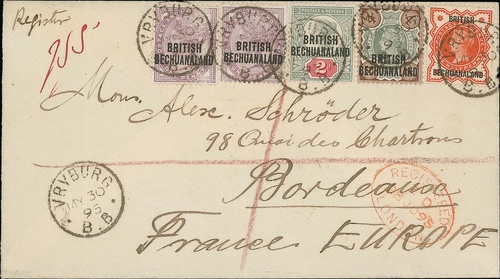 Register
VRYBURG
BRITISH
BECHUANALAND
BRITISH
BECHUANALAND
BRITISH
BECHUANALAND
2d
BRITISH
BECHUANALAND
BRITISH
BECHUANALAND
Mons. Alex. Schröder
98 Quai des Chartrons
Bordeaux
France. EUROPE
VRYBURG
MY 30
95
B.B.
REGISTERED
LONDON